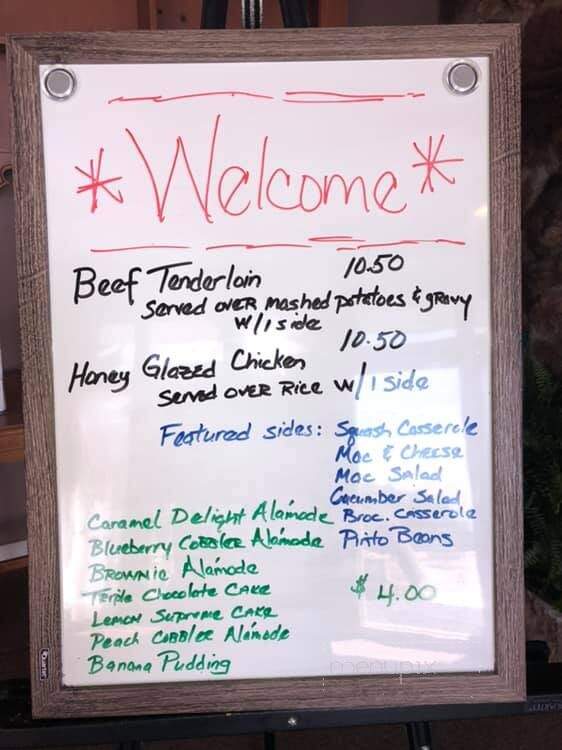 *Welcome*
Beef Tenderloin 10.50
Served over mashed potatoes & gravy
w/1 side
Honey Glazed Chicken 10.50
Served over Rice w/1 side
Featured sides: Squash Casserole
Mac & Cheese
Mac Salad
Cucumber Salad
Caramel Delight Alamode Broc. Casserole
Blueberry Cobbler Alamode Pinto Beans
Brownie Alamode
Triple Chocolate Cake $4.00
Lemon Supreme Cake
Peach Cobbler Alamode
Banana Pudding
menupix